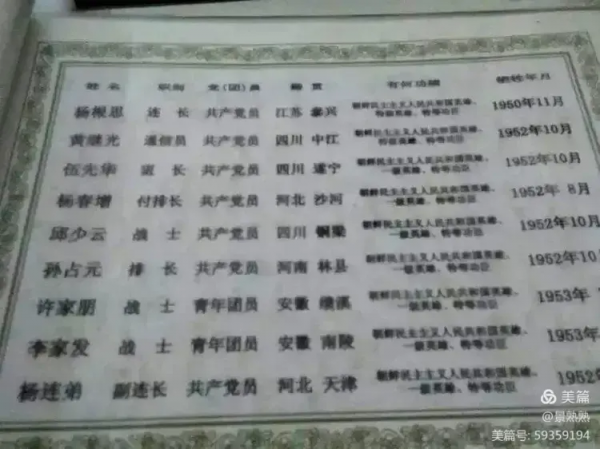 姓名 职别 党(团)员 籍贯 有何功绩 牺牲年月
杨根思 连长 共产党员 江苏 泰兴 朝鲜民主主义人民共和国英雄、特级英雄、特等功臣 1950年11月
黄继光 通信员 共产党员 四川 中江 朝鲜民主主义人民共和国英雄、特级英雄、特等功臣 1952年10月
伍先华 班长 共产党员 四川 遂宁 朝鲜民主主义人民共和国英雄、一级英雄、特等功臣 1952年10月
杨春增 付排长 共产党员 河北 沙河 朝鲜民主主义人民共和国英雄、一级英雄、特等功臣 1952年 8月
邱少云 战士 共产党员 四川 铜梁 朝鲜民主主义人民共和国英雄、一级英雄、特等功臣 1952年10月
孙占元 排长 共产党员 河南 林县 朝鲜民主主义人民共和国英雄、一级英雄、特等功臣 1952年10
许家朋 战士 青年团员 安徽 绩溪 朝鲜民主主义人民共和国英雄、一级英雄、特等功臣 1953年
李家发 战士 青年团员 安徽 南陵 朝鲜民主主义人民共和国英雄、一级英雄、特等功臣 1953年
杨连弟 副连长 共产党员 河北 天津 朝鲜民主主义人民共和国英雄、一级英雄、特等功臣 1952
美篇
@景熱熱
美篇号: 59359194